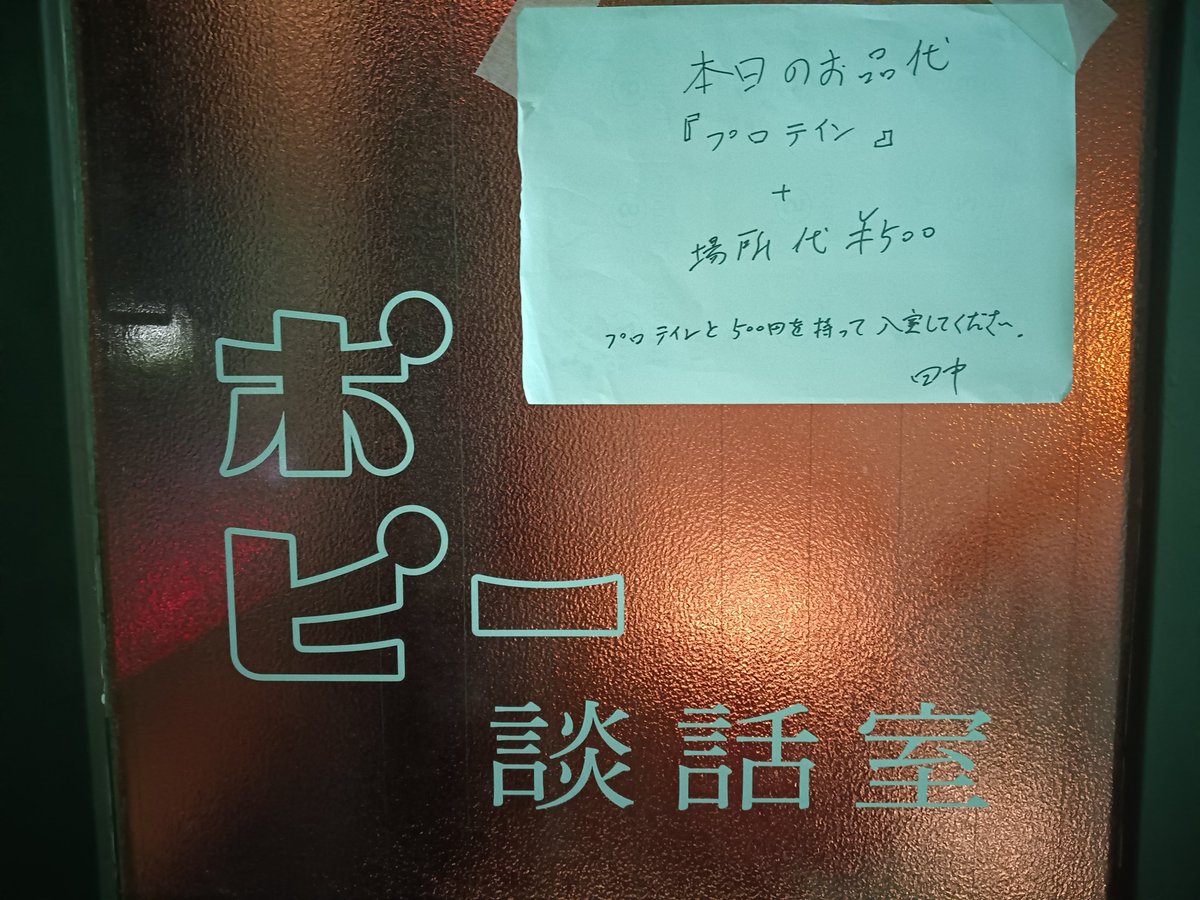 本日のお品代
『プロテイン』
+
場所代 ¥500
プロテインと500円を持って入室してください.
田中
ポ
ピー
談話室